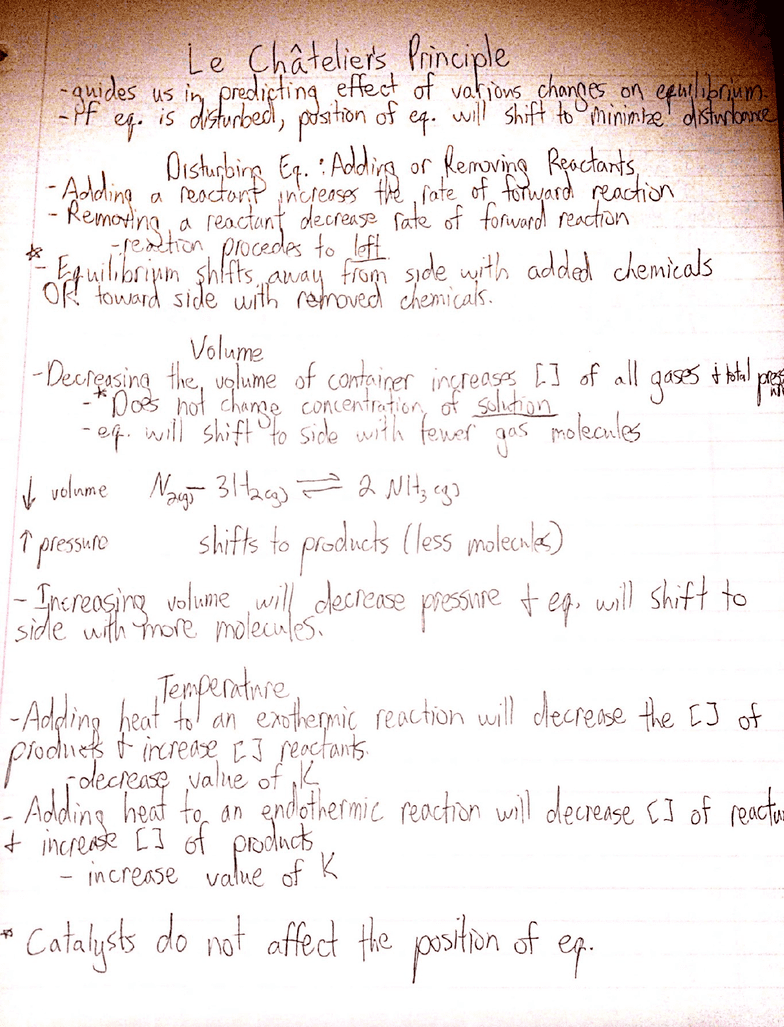 Le Châtelier's Principle
- guides us in predicting effect of various changes on equilibrium.
- If eq. is disturbed, position of eq. will shift to minimize disturbance
Disturbing Eq. : Adding or Removing Reactants
- Adding a reactant increases the rate of forward reaction
- Removing a reactant decrease rate of forward reaction
- reaction procedes to left
* - Equilibrium shifts away from side with added chemicals
OR toward side with removed chemicals.
Volume
- Decreasing the volume of container increases [] of all gases + total
- * Does not change concentration of solution
- eq. will shift to side with fewer gas molecules
↓ volume N2(g) - 3H2(g) ⇌ 2 NH3(g)
↑ pressure shifts to products (less molecules)
- Increasing volume will decrease pressure + eq. will shift to
side with more molecules.
Temperature
- Adding heat to an exothermic reaction will decrease the [] of
products + increase [] reactants.
- decrease value of K
- Adding heat to an endothermic reaction will decrease [] of
+ increase [] of products
- increase value of K
* Catalysts do not affect the position of eq.